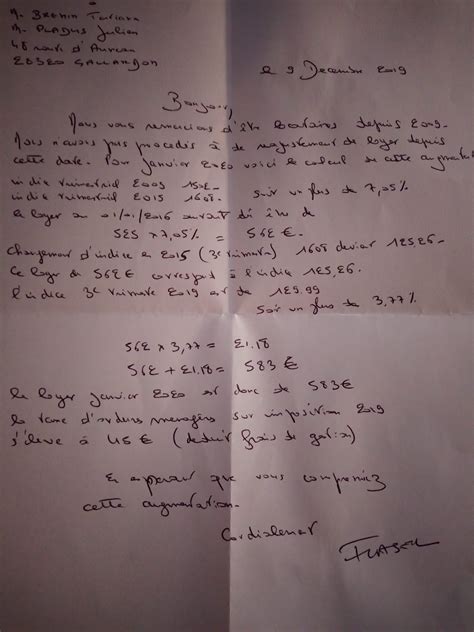 A.
A. Julien
48 route d'Auneau
28320 GALLARDON
le 9 Decembre 2019
Bonjour,
Nous vous remercions d'être locataires depuis 2009.
Nous n'avons pas procédés à de de loyer depuis
cette date. Pour janvier 2020 voici le calcul de cette augmentat
indice trimestriel 2009
indice trimestriel 2015 1608. soit un plus de 7,05%
le loyer au 01/01/2016 aurait dû être de
525 x 7,05% = 562 €.
changement d'indice en 2015 (3e trimestre) 1608 devient 125,26.
Ce loyer de 562€ correspond à l'indice 125,26.
l'indice 3e trimestre 2019 est de 129.99
soit un plus de 3,77%
562 x 3,77 = 21.18
562 + 21.18 = 583 €
le loyer janvier 2020 est donc de 583€
la taxe d'ordures menagères sur imposition 2019
s'élève à 45 € (déduit frais de gestion)
En esperant que vous compreniez
cette augmentation.
Cordialement